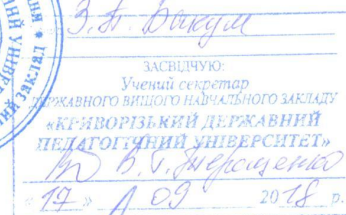 З.П. Бакум
ЗАСВІДЧУЮ:
Учений секретар
ДЕРЖАВНОГО ВИЩОГО НАВЧАЛЬНОГО ЗАКЛАДУ
«КРИВОРІЗЬКИЙ ДЕРЖАВНИЙ
ПЕДАГОГІЧНИЙ УНІВЕРСИТЕТ»
В.Г. Терещенко
«17» 09 2018 р.